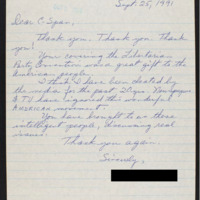 Sept. 25, 1991
Dear C-Span,
Thank you. Thank you. Thank
you!
Your covering the Libertarian
Party Convention was a great gift to the
American people.
I think I have been cheated by
the media for the past 20 yrs. Newspapers
& TV have ignored this wonderful
American movement.
You have brought to us these
intelligent people, discussing real
issues.
Thank you again.
Sincerely,